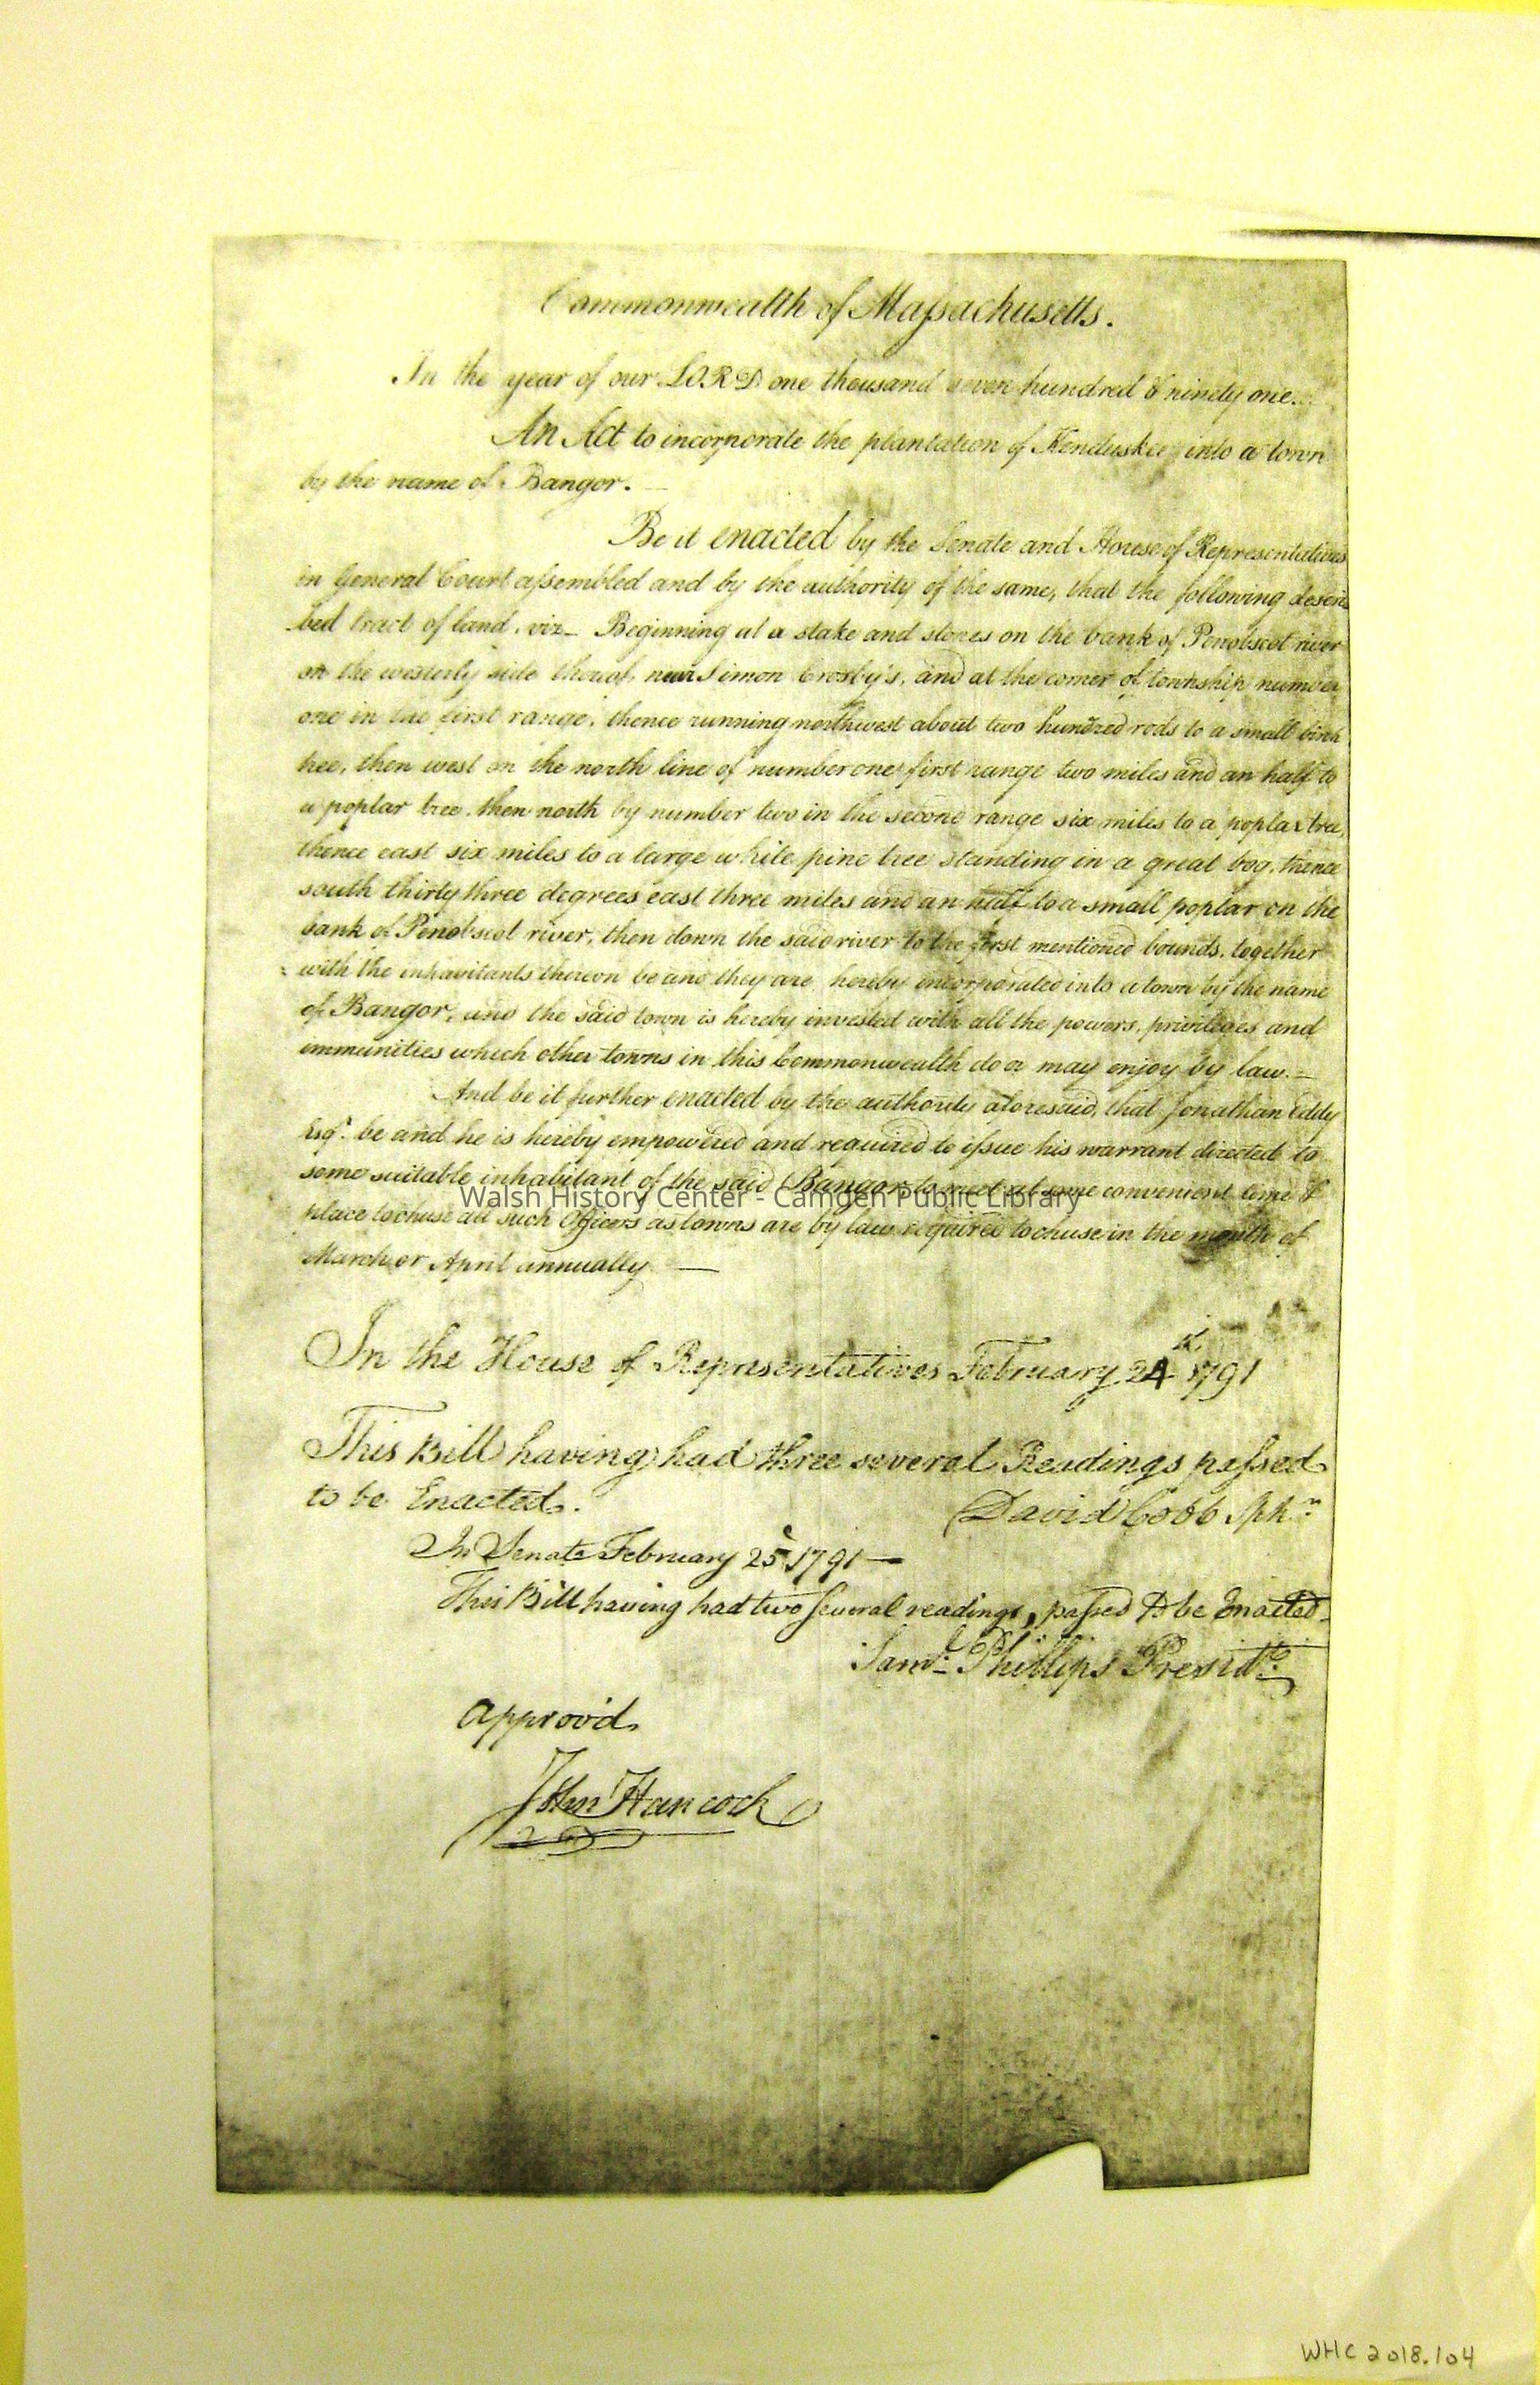 Commonwealth of Massachusetts.
In the year of our LORD one thousand seven hundred & ninety one.
An Act to incorporate the plantation of Kenduskee into a town
by the name of Bangor.
Be it enacted by the Senate and House of Representatives
in General Court assembled and by the authority of the same, that the following descri
bed tract of land, viz_ Beginning at a stake and stones on the bank of Penobscot river
on the westerly side thereof, near Simon Crosby's, and at the corner of township number
one in the first range, thence running northwest about two hundred rods to a small birch
tree, then west on the north line of number one first range two miles and an half to
a poplar tree, then north by number two in the second range six miles to a poplar tree,
thence east six miles to a large white pine tree standing in a great bog, thence
south thirty three degrees east three miles and an half to a small poplar on the
bank of Penobscot river, then down the said river to the first mentioned bounds, together
with the inhabitants thereon be and they are hereby incorporated into a town by the name
of Bangor, and the said town is hereby invested with all the powers, privileges and
immunities which other towns in this Commonwealth do or may enjoy by law.
And be it further enacted by the authority aforesaid, that Jonathan Eddy
Esqr. be and he is hereby empowered and required to issue his warrant directed to
some suitable inhabitant of the said Bangor to meet at some convenient time &
Walsh History Center - Camden Public Library
place to chuse all such Officers as towns are by law required to chuse in the month of
March or April annually. —
In the House of Representatives February 24 1791
This Bill having had three several Readings passed
to be Enacted.
David Cobb Spkr
In Senate February 25 1791 —
This Bill having had two several readings, passed to be Enacted
Saml. Phillips Presidt.
Approv'd
John Hancock
WHC 2018.104